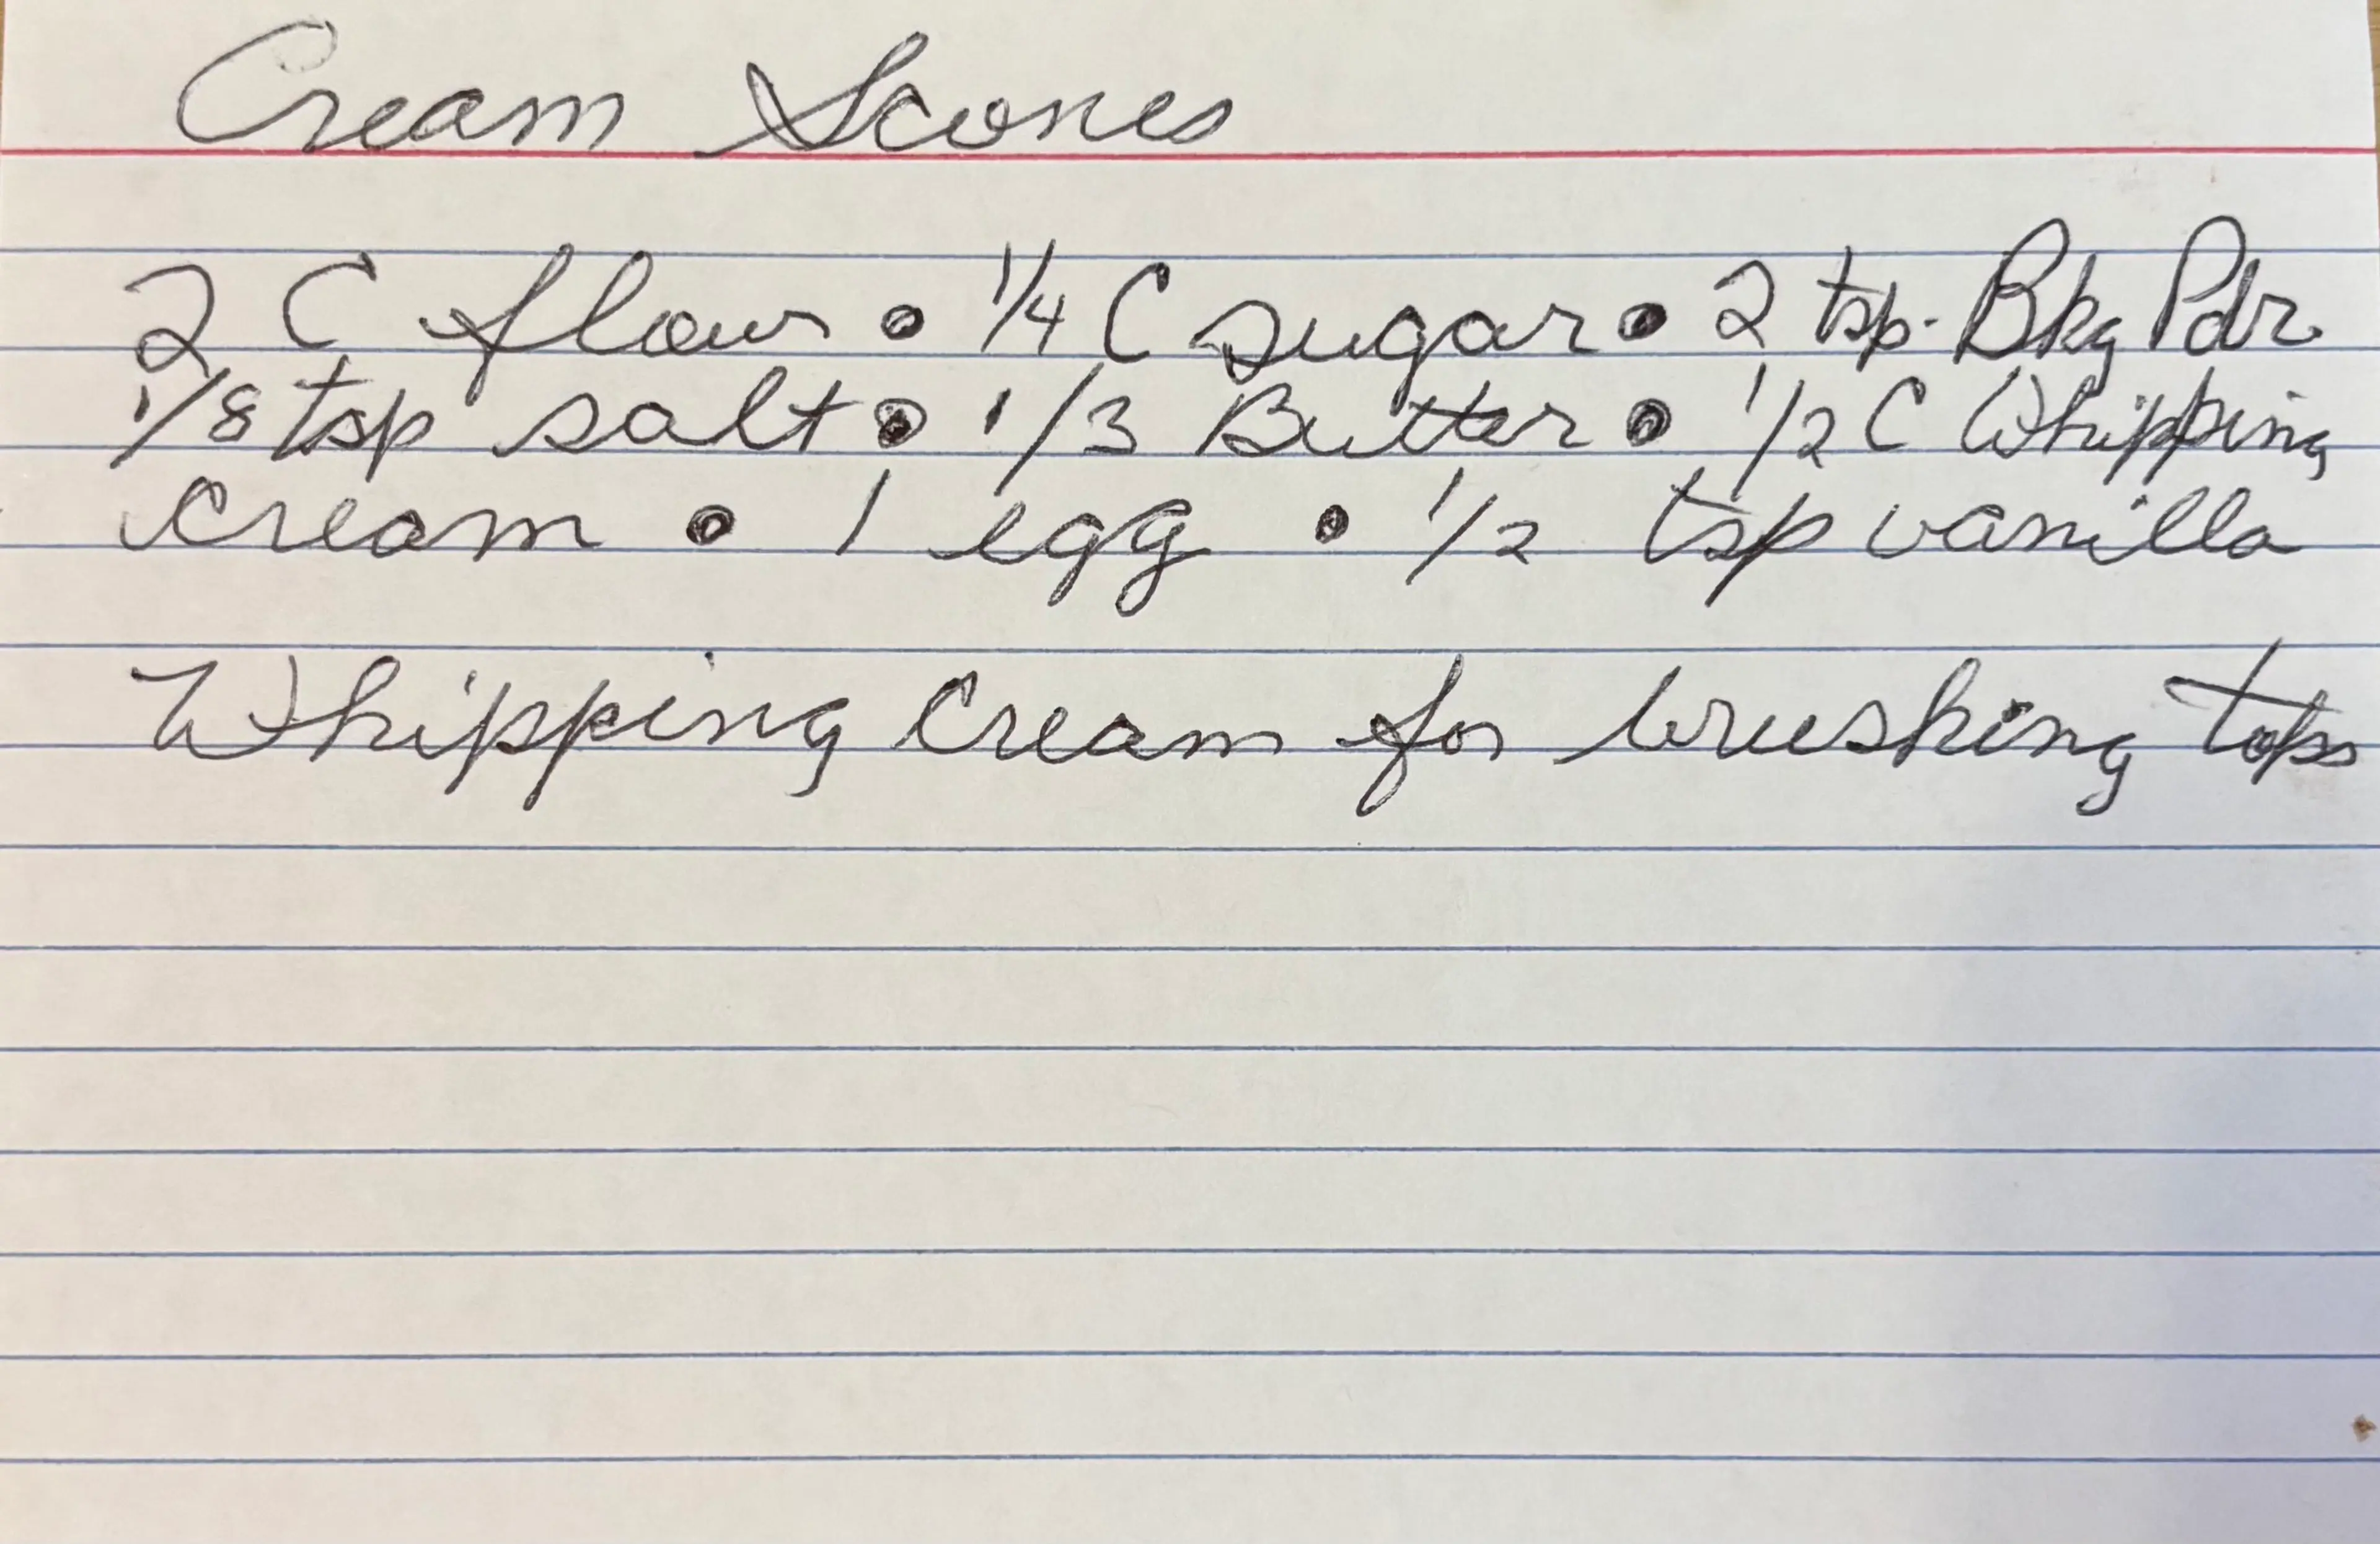 Cream Scones
2 C flour • 1/4 C sugar • 2 tsp. Bkg Pdr.
1/8 tsp salt • 1/3 Butter • 1/2 C Whipping
cream • 1 egg • 1/2 tsp vanilla
Whipping Cream for brushing tops